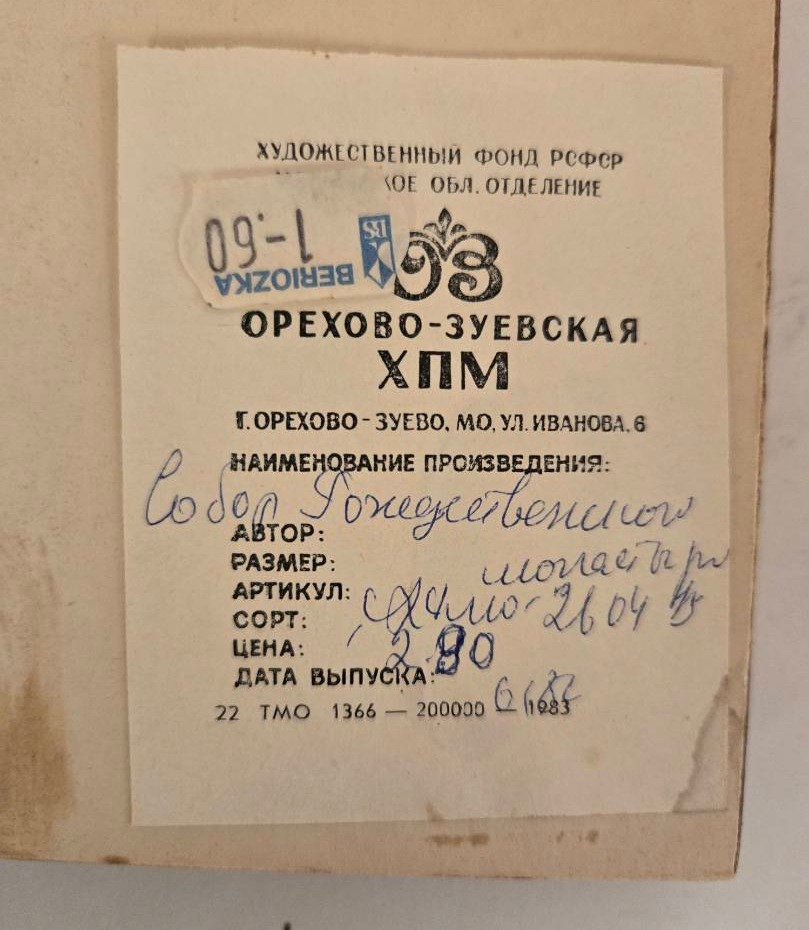 ХУДОЖЕСТВЕННЫЙ ФОНД РСФСР
ОБЛ. ОТДЕЛЕНИЕ
1-60
BERIOZKA
ОЗ
ОРЕХОВО-ЗУЕВСКАЯ
ХПМ
Г. ОРЕХОВО - ЗУЕВО, МО, УЛ. ИВАНОВА, 6
НАИМЕНОВАНИЕ ПРОИЗВЕДЕНИЯ:
Собор Рождественского
АВТОР:
монастыря
РАЗМЕР:
АРТИКУЛ:
2604
СОРТ:
ЦЕНА: 2.90
ДАТА ВЫПУСКА:
22 ТМО 1366 — 200000 — 1983